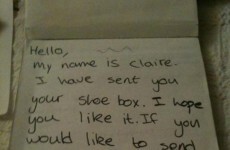 Hello,
my name is Claire.
I have sent you
your shoe box. I hope
you like it. If you
would like to send